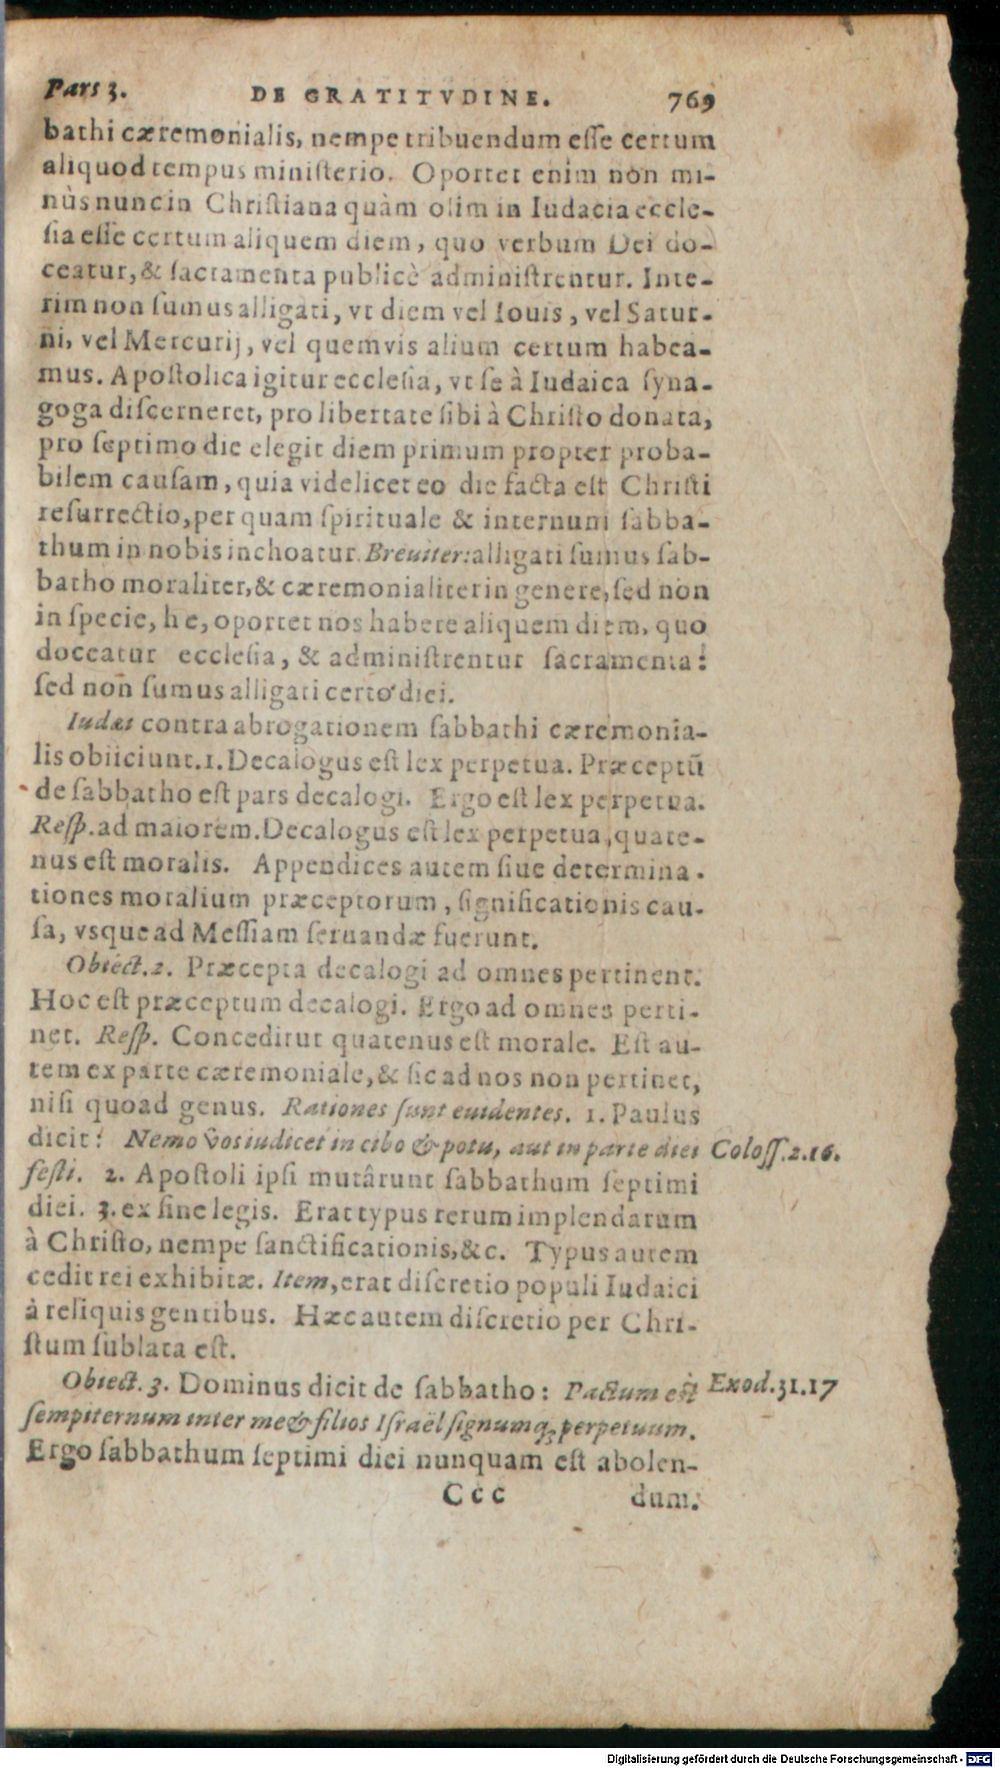 Pars 3. DE GRATITVDINE. 769
bathi cæremonialis, nempe tribuendum esse certum
aliquod tempus ministerio. Oportet enim non mi-
nùs nunc in Christiana quàm olim in Iudacia eccle-
sia esse certum aliquem diem, quo verbum Dei do-
ceatur, & sacramenta publicè administrentur. Inte-
rim non sumus alligati, vt diem vel Iouis, vel Satur-
ni, vel Mercurij, vel quemvis alium certum habea-
mus. Apostolica igitur ecclesia, vt se à Iudaica syna-
goga discerneret, pro libertate sibi à Christo donata,
pro septimo die elegit diem primum propter proba-
bilem causam, quia videlicet eo die facta est Christi
resurrectio, per quam spirituale & internum sabba-
thum in nobis inchoatur. Breuiter: alligati sumus sab-
batho moraliter, & cæremonialiter in genere, sed non
in specie, h e, oportet nos habere aliquem diem, quo
doceatur ecclesia, & administrentur sacramenta:
sed non sumus alligati certo diei.
Iudæi contra abrogationem sabbathi cæremonia-
lis obiiciunt. 1. Decalogus est lex perpetua. Præceptū
de sabbatho est pars decalogi. Ergo est lex perpetua.
Resp. ad maiorem. Decalogus est lex perpetua, quate-
nus est moralis. Appendices autem siue determina-
tiones moralium præceptorum, significationis cau-
sa, vsque ad Messiam seruandæ fuerunt.
Obiect. 2. Præcepta decalogi ad omnes pertinent.
Hoc est præceptum decalogi. Ergo ad omnes perti-
net. Resp. Conceditur quatenus est morale. Est au-
tem ex parte cæremoniale, & sic ad nos non pertinet,
nisi quoad genus. Rationes sunt euidentes. 1. Paulus
dicit: Nemo vos iudicet in cibo & potu, aut in parte diei Coloss. 2. 16.
festi. 2. Apostoli ipsi mutârunt sabbathum septimi
diei. 3. ex fine legis. Erat typus rerum implendarum
à Christo, nempe sanctificationis, &c. Typus autem
cedit rei exhibitæ. Item, erat discretio populi Iudaici
à reliquis gentibus. Hæc autem discretio per Chri-
stum sublata est.
Obiect. 3. Dominus dicit de sabbatho: Pactum est Exod. 31. 17
sempiternum inter me & filios Israël signumq; perpetuum.
Ergo sabbathum septimi diei nunquam est abolen-
Ccc dum.
Digitalisierung gefördert durch die Deutsche Forschungsgemeinschaft - DFG